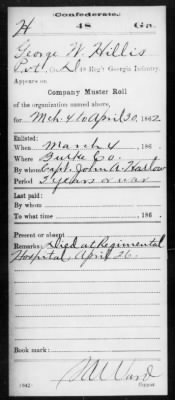 Confederate.
H 48 Ga.
George W. Hillis
Pvt., Co. D, 48 Reg't Georgia Infantry.
Appears on
Company Muster Roll
of the organization named above,
for Mch. 4 to April 30, 1862.
Enlisted:
When March 4, 186 .
Where Burke Co.
By whom Capt. John A. Harlow
Period 3 years or war
Last paid:
By whom
To what time , 186 .
Present or absent
Remarks: Died at Regimental
Hospital, April 26.
Book mark:
(642) Copyist.